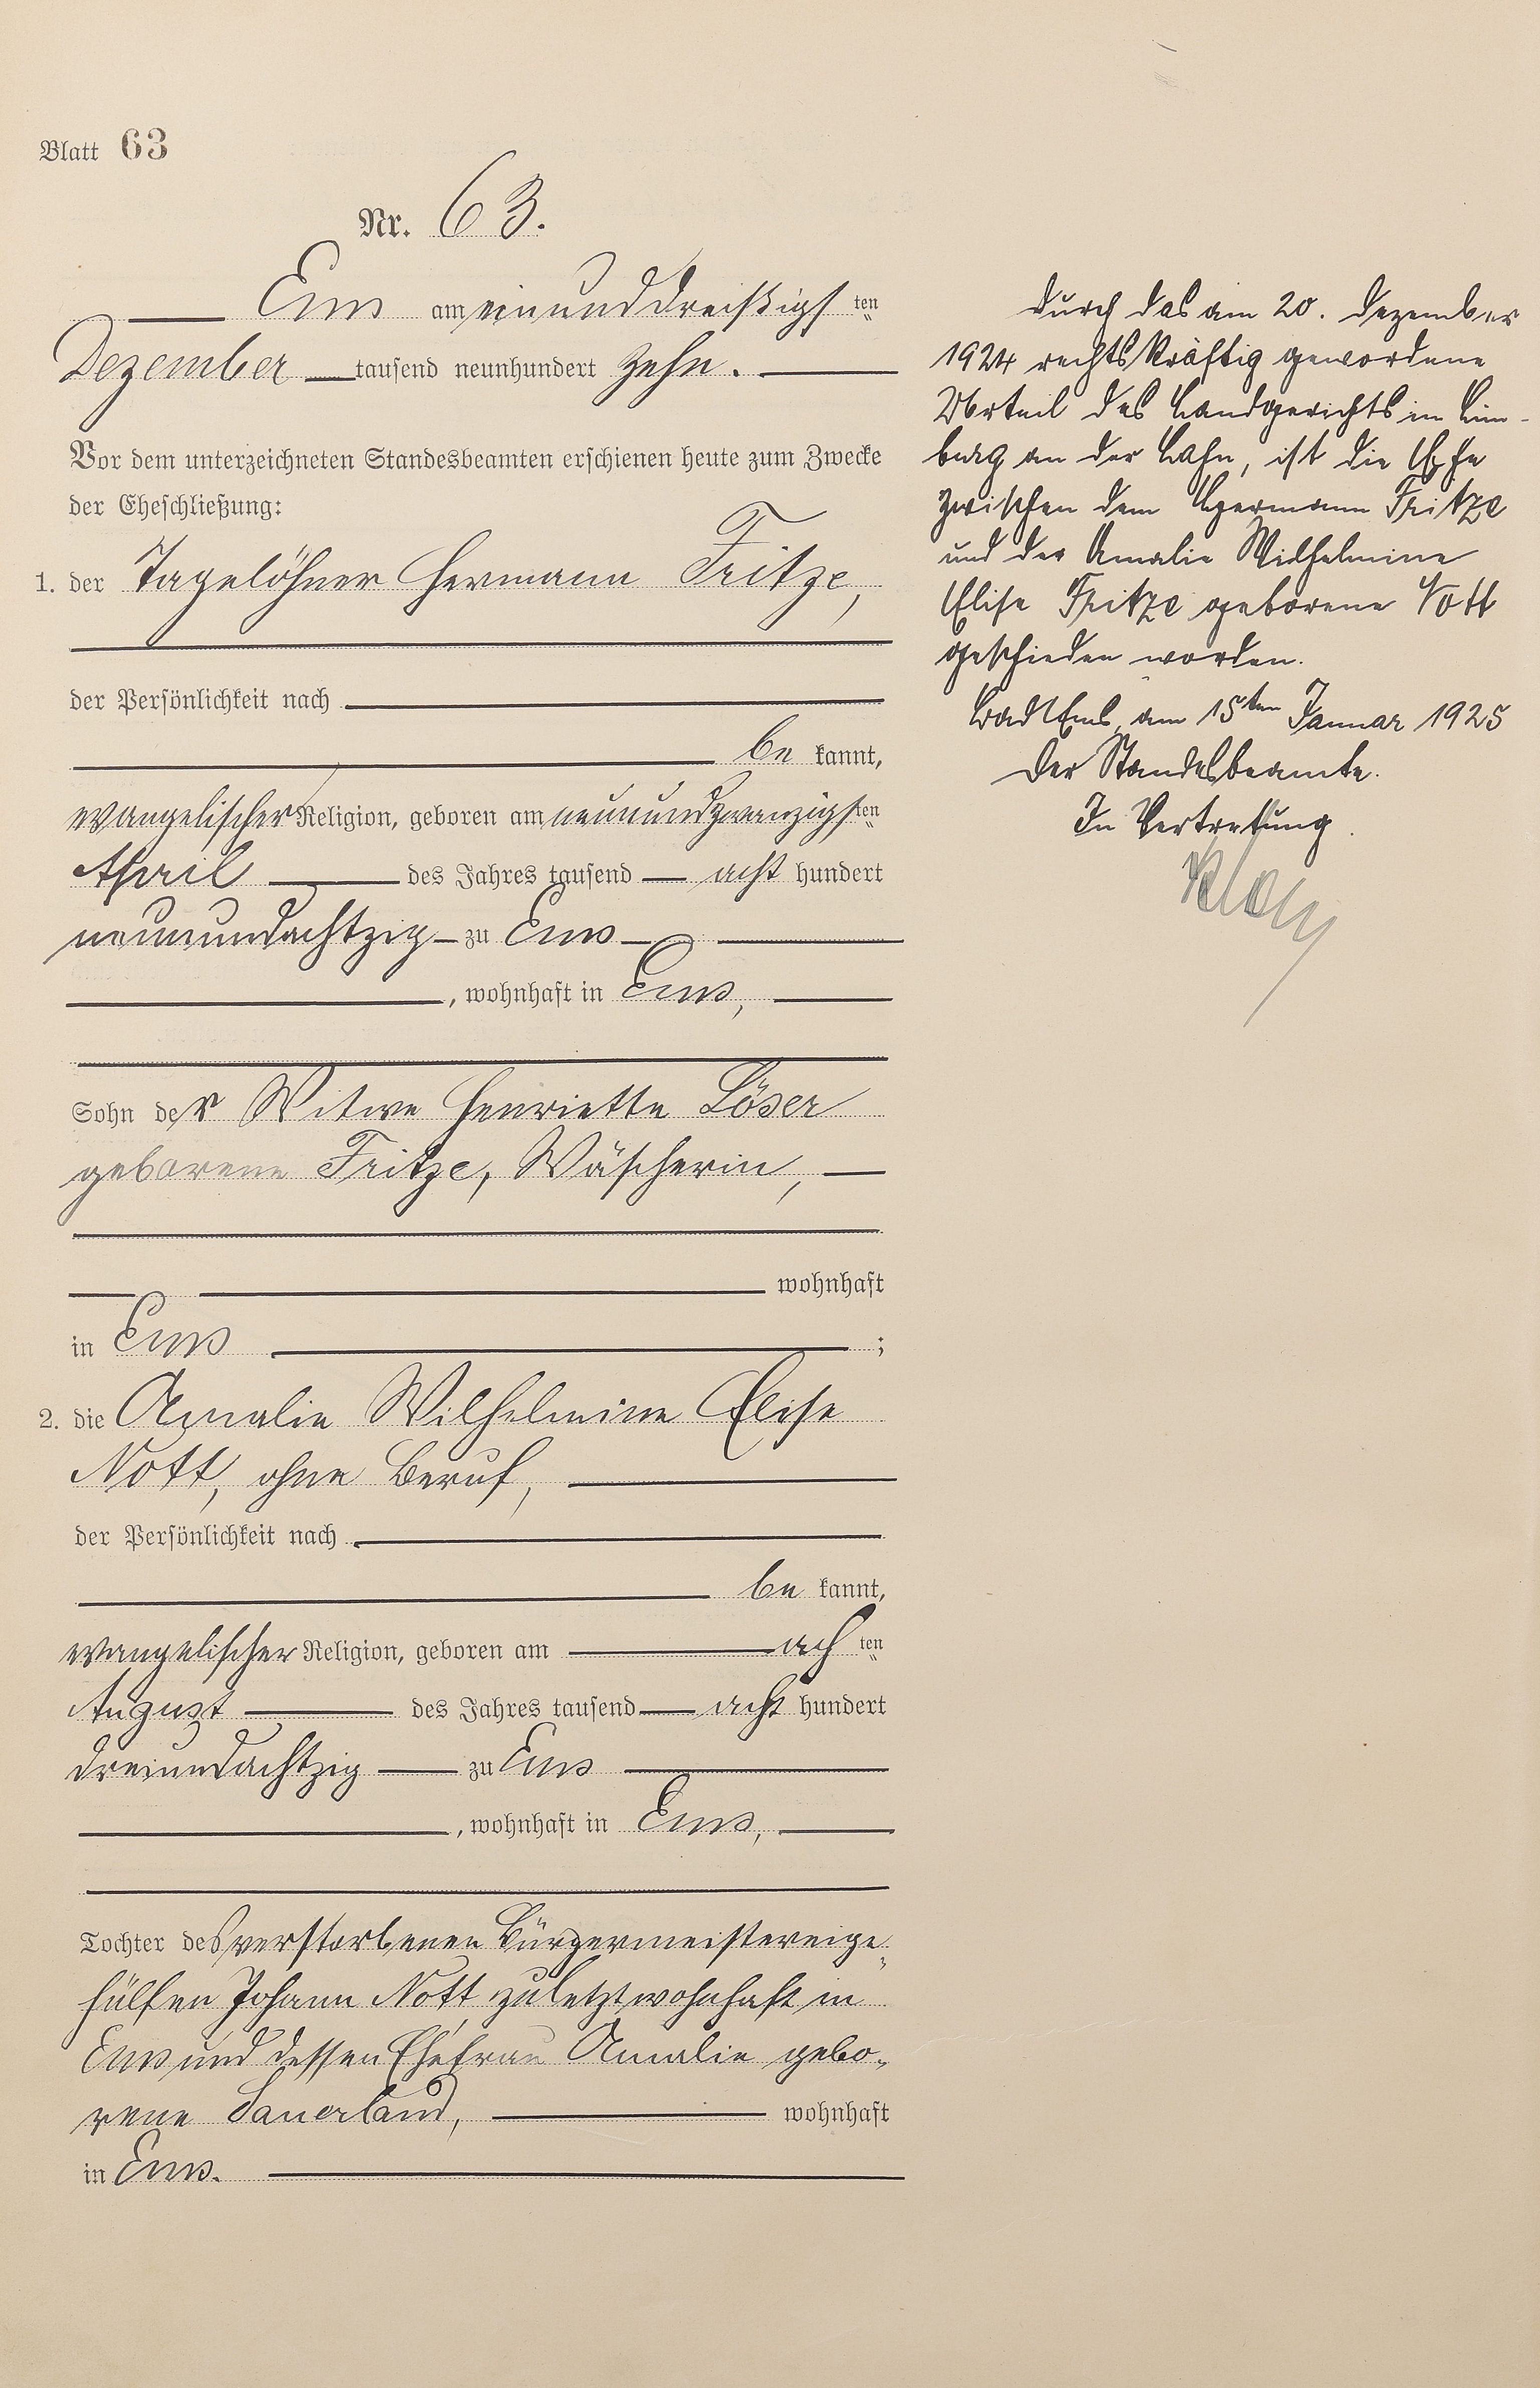 Blatt 63
Nr. 63.
Ems am einunddreißigs ten
Dezember tausend neunhundert zehn.
Vor dem unterzeichneten Standesbeamten erschienen heute zum Zwecke
der Eheschließung:
1. der Tagelöhner Hermann Fritze,
der Persönlichkeit nach
be kannt,
evangelischer Religion, geboren am neunundzwanzigs ten
April des Jahres tausend acht hundert
neunundachtzig zu Ems
, wohnhaft in Ems,
Sohn der Witwe Henriette Löser
geborene Fritze, Wäscherin,
wohnhaft
in Ems ;
2. die Amalie Wilhelmine Elise
Nott, ohne Beruf,
der Persönlichkeit nach
be kannt,
evangelischer Religion, geboren am ach ten
August des Jahres tausend acht hundert
dreiundachtzig zu Ems
, wohnhaft in Ems,
Tochter des verstorbenen Bürgermeistereige-
hülfen Johann Nott, zuletzt wohnhaft in
Ems und dessen Ehefrau Amalie gebo-
rene Sauerland, wohnhaft
in Ems.
Durch das am 20. Dezember
1924 rechtskräftig gewordene
Urteil des Landgerichts in Lim-
burg an der Lahn, ist die Ehe
zwischen dem Hermann Fritze
und der Amalie Wilhelmine
Elise Fritze geborene Nott
geschieden worden.
Bad Ems, am 15ten Januar 1925
Der Standesbeamte.
In Vertretung.